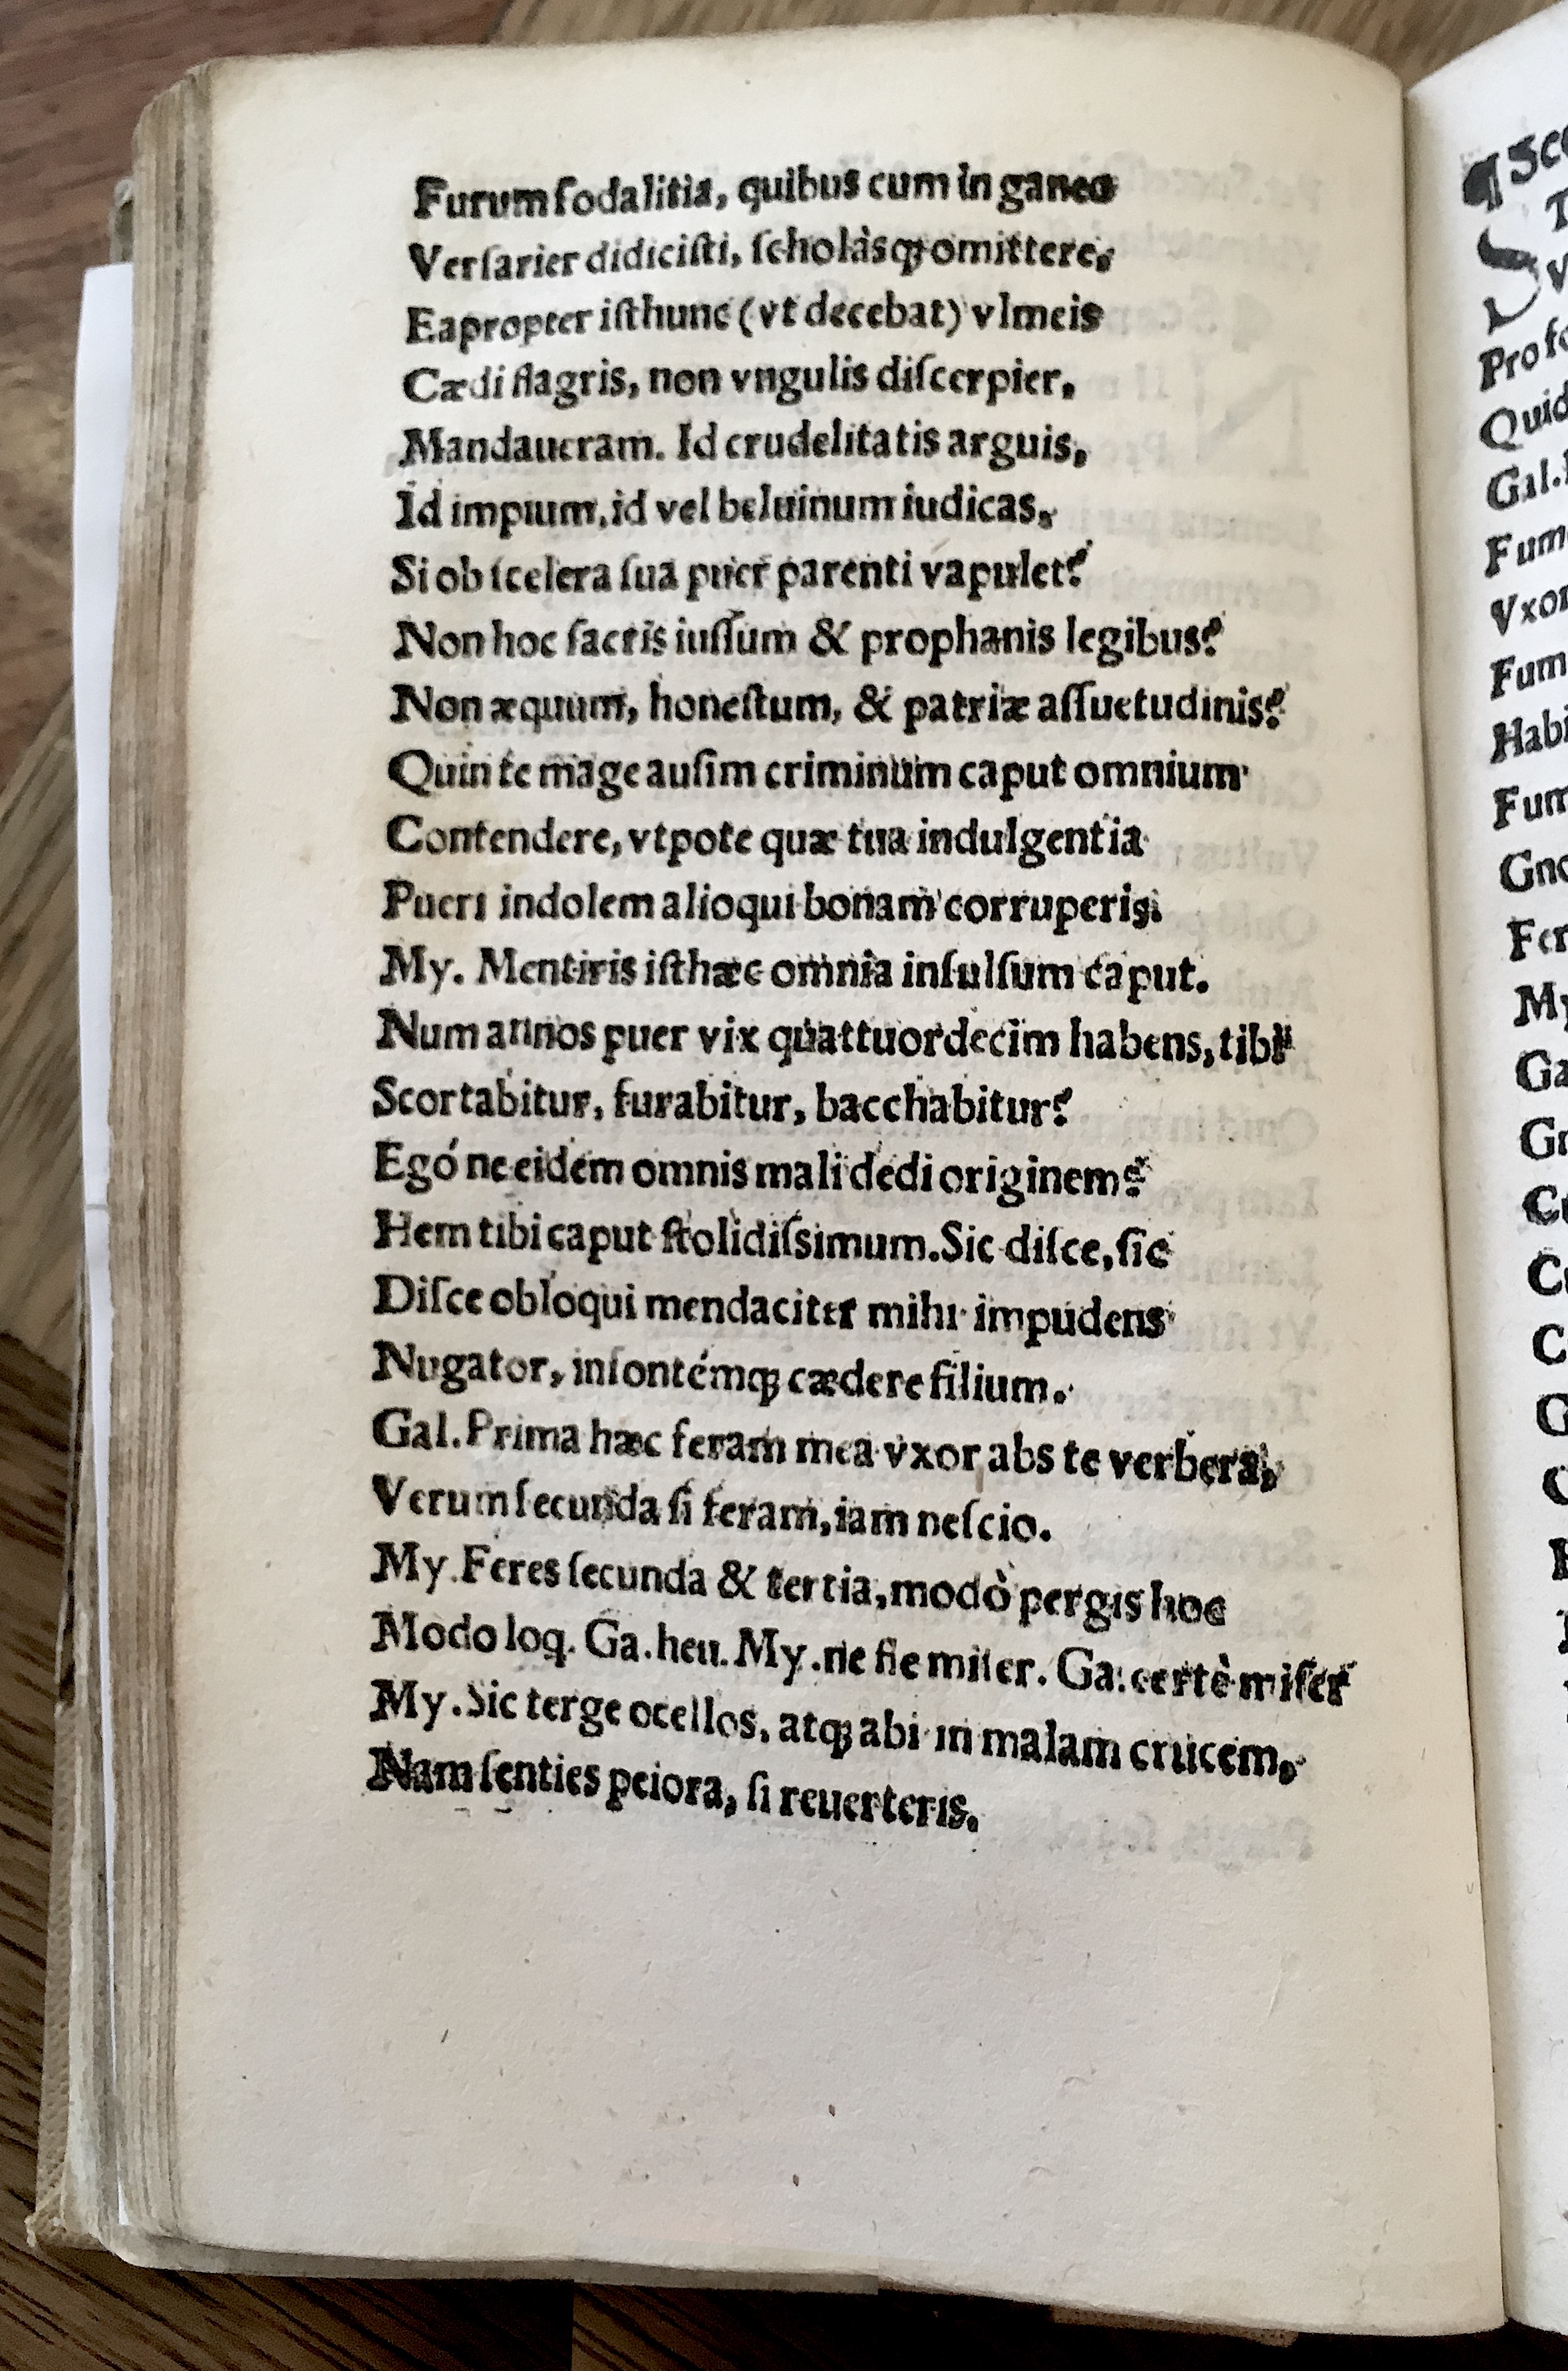 Furum ſodalitia, quibus cum in ganeo
Verſarier didiciſti, ſcholàsq; omittere,
Eapropter iſthunc (vt decebat) vlmeis
Cædi flagris, non vngulis diſcerpier,
Mandaueram. Id crudelitatis arguis,
Id impium, id vel beluinum iudicas,
Si ob ſcelera ſua puer parenti vapulet?
Non hoc ſacris iuſſum & prophanis legibus?
Non æquum, honeſtum, & patriæ aſſuetudinis?
Quin te mage auſim criminum caput omnium
Contendere, vtpote quæ tua indulgentia
Pueri indolem alioqui bonam corruperis.
My. Mentiris iſthæc omnia inſulſum caput.
Num annos puer vix quattuordecim habens, tibi
Scortabitur, furabitur, bacchabitur?
Egó ne eidem omnis mali dedi originem?
Hem tibi caput ſtolidiſsimum. Sic diſce, ſic
Diſce obloqui mendaciter mihi impudens
Nugator, inſontémq; cædere filium.
Gal. Prima hæc feram mea vxor abs te verbera,
Verum ſecunda ſi feram, iam neſcio.
My. Feres ſecunda & tertia, modò pergis hoc
Modo loq. Ga. heu. My. ne fle miſer. Ga. certè miſer
My. Sic terge ocellos, atq; abi in malam crucem,
Nam ſenties peiora, ſi reuerteris.
¶ Sce
Pro
Quid
Gal.
Fum
Vxor
Fum
Habi
Fum
Gno
Fer
My
Ga